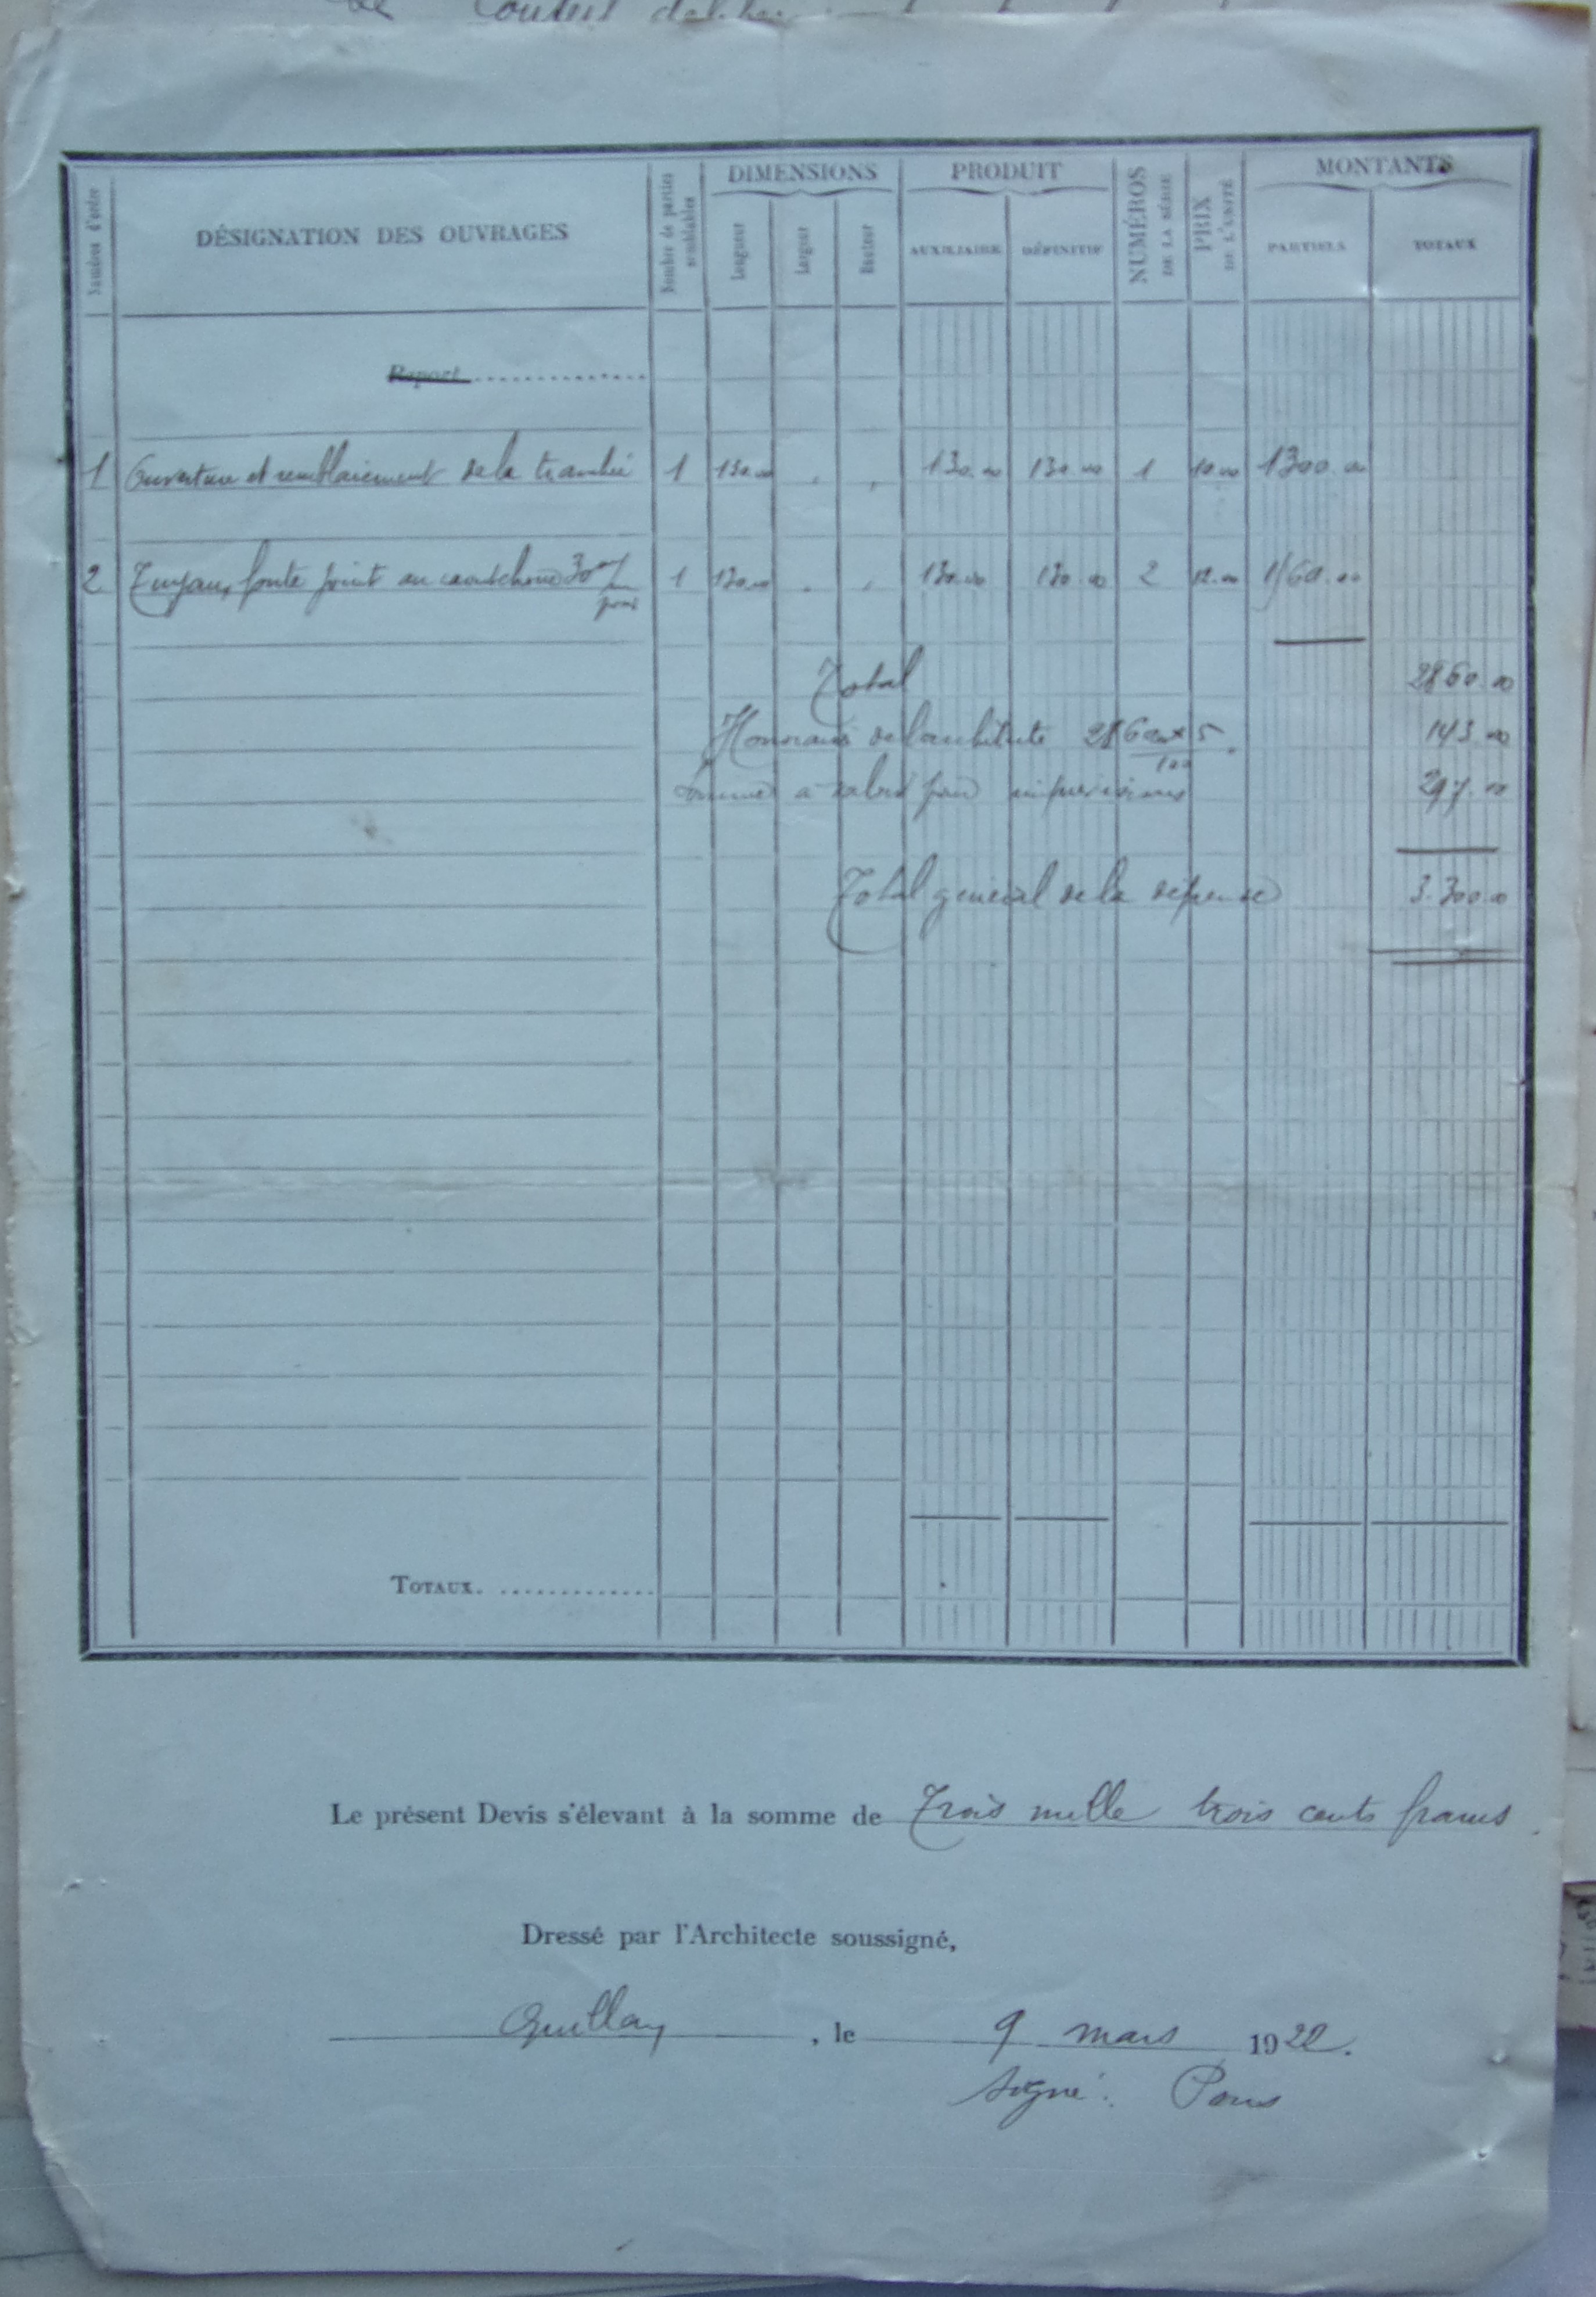 Conseil
Numéros d'ordre
DÉSIGNATION DES OUVRAGES
Nombre de parties semblables
DIMENSIONS
Longueur
Largeur
Hauteur
PRODUIT
AUXILIAIRE
DÉFINITIF
NUMÉROS
DE LA SÉRIE
PRIX
DE L'UNITÉ
MONTANTS
PARTIELS
TOTAUX
Report
1 Ouverture et remblaiement de la tranchée 1 130.00 130.00 130.00 1 10.00 1300.00
2 Tuyaux fonte joint au caoutchouc 30 m/m 1 130.00 130.00 130.00 2 12.00 1560.00
Total 2860.00
Honoraires de l'architecte 2860.00 x 5 143.00
100
Somme à valoir pour imprévisions 297.00
Total général de la dépense 3.300.00
TOTAUX.
Le présent Devis s'élevant à la somme de Trois mille trois cents francs
Dressé par l'Architecte soussigné,
Quillan, le 9 mars 1922.
Signé: Pons